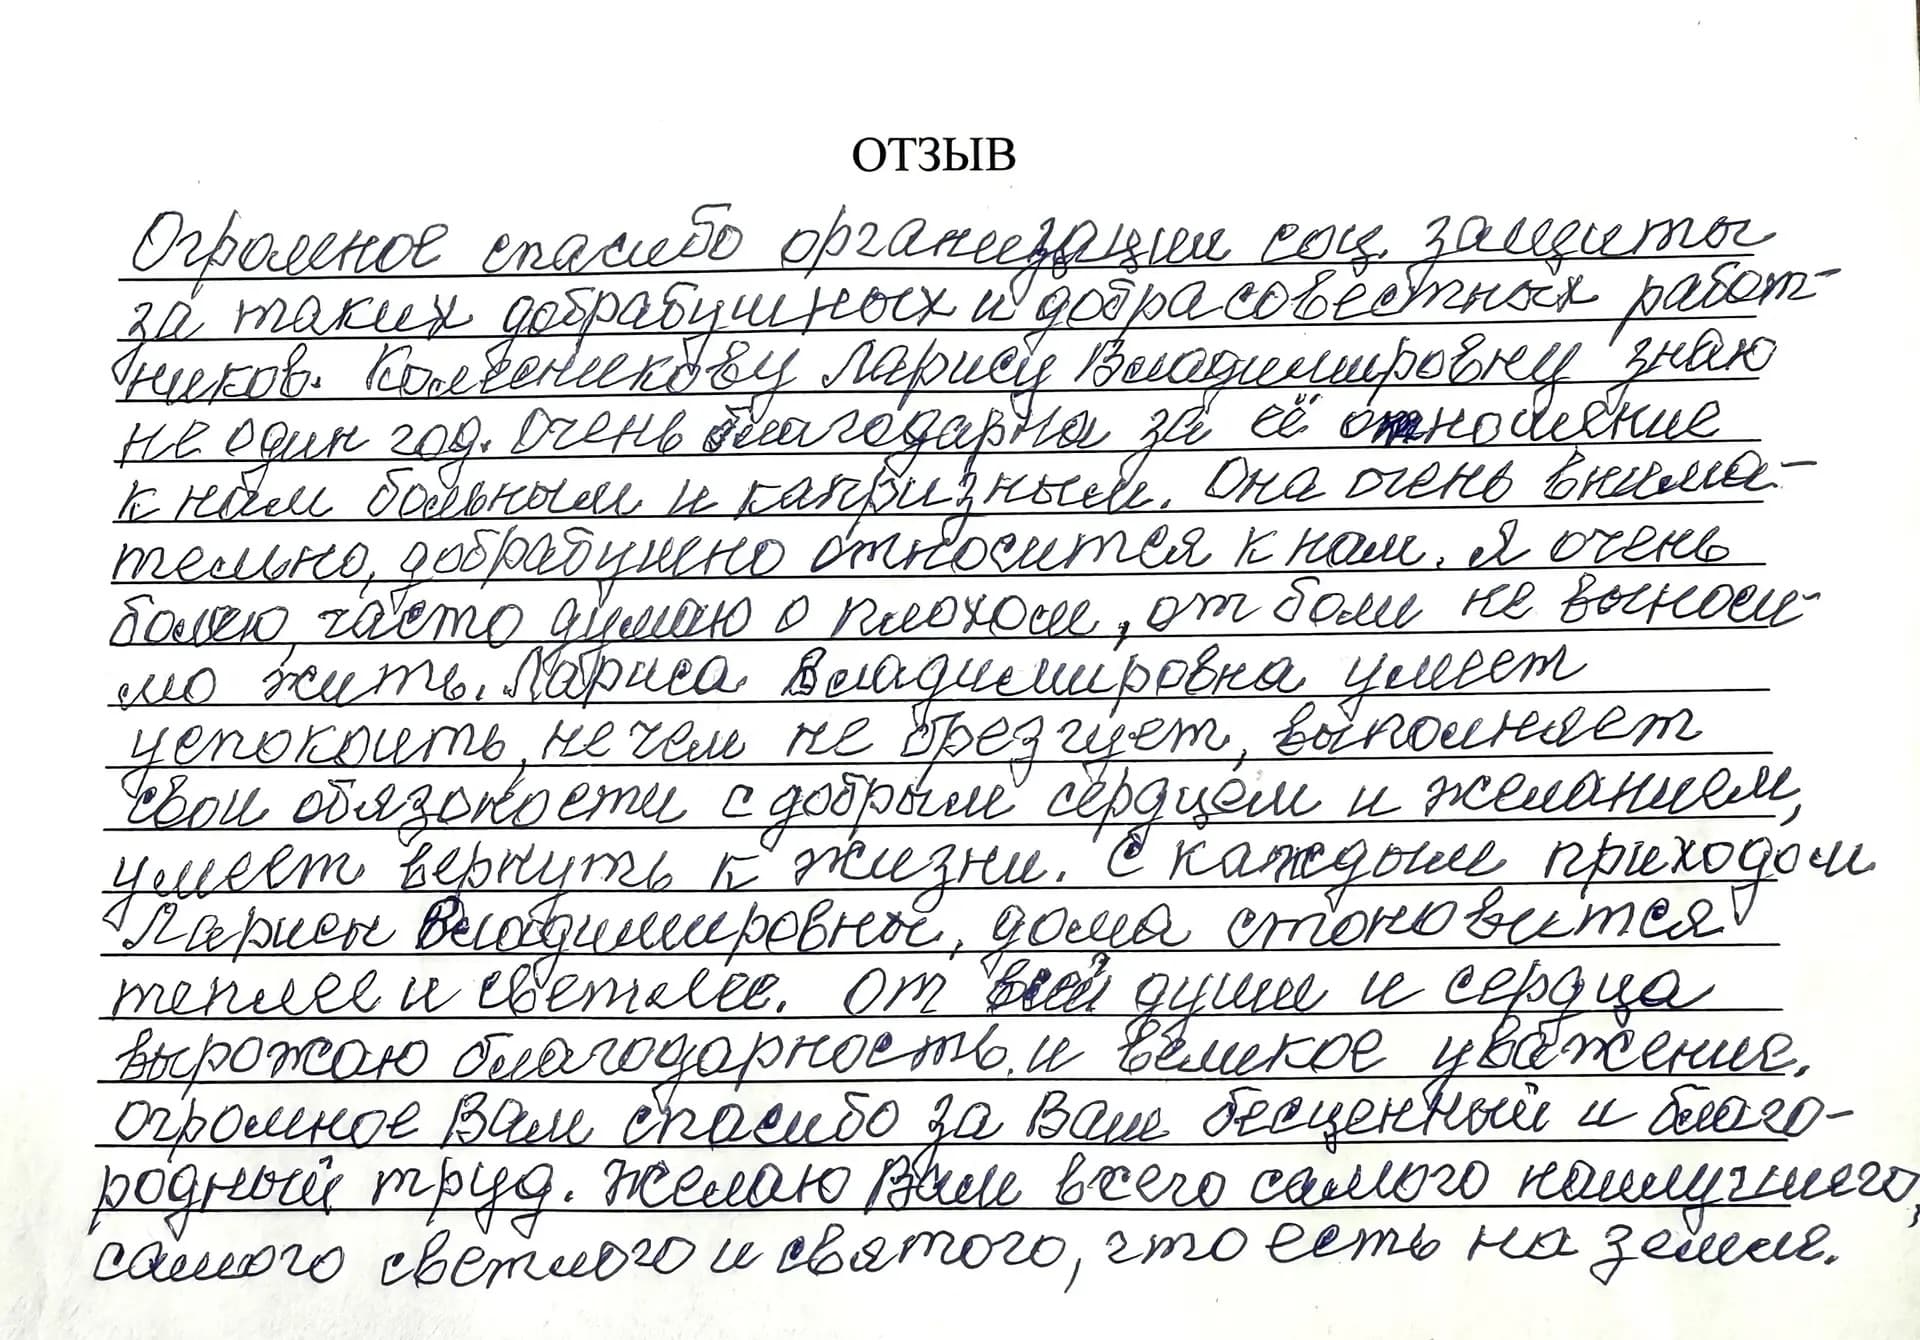 ОТЗЫВ
Огромное спасибо организации соц. защиты
за таких добрабушных и добрасовестных работ-
ников. Колесникову Ларису Владимировну знаю
не один год. Очень благодарна за её отношение
к нам больным и капризным. Она очень внима-
тельно, добрабушно относится к нам. Я очень
болею, часто думаю о плохом, от боли не выноси-
мо жить. Лариса Владимировна умеет
успокоить, не чем не брезгует, выполняет
свои обязоности с добрым сердцем и желанием,
умеет вернуть к жизни. С каждым приходом
Ларисы Владимировны, дома становится
теплее и светлее. От всей души и сердца
вырожаю благодарность и великое уважение.
Огромное Вам спасибо за Ваш бесценный и благо-
родный труд. Желаю Вам всего самого наилучшего,
самого светлого и святого, что есть на земле.